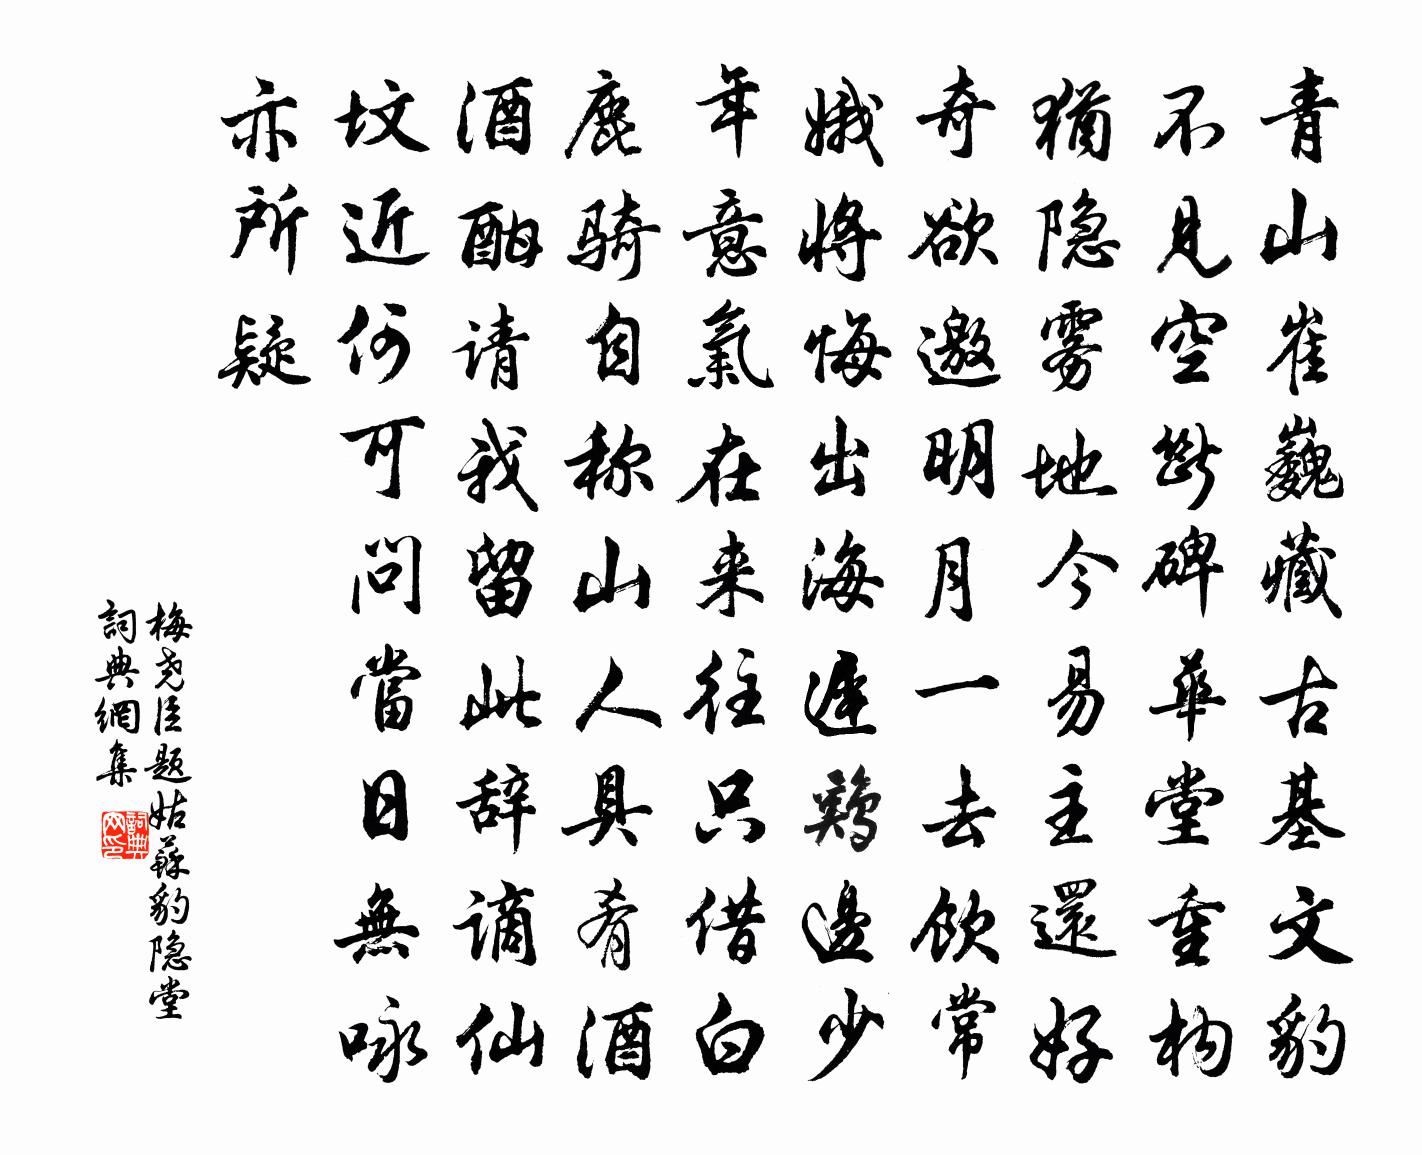 青山崔巍藏古基文豹
不見空断碑華堂重构
猶隐雾地今易主還好
奇欲邀明月一去飲常
娥將悔出海遲鶏邊少
年意氣在来往只借白
鹿骑自称山人具肴酒
酒酣请我留此辞谪仙
坟近何可問當日無咏
亦所疑
梅尧臣题姑蘇豹隐堂
詞典網集
詞典网印